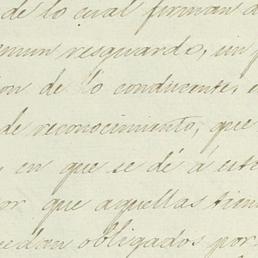 de lo cual firman a
comun resguardo, un
ion de lo conducente,
de reconocimiento, que
en que se dé á este
or que aquellas tien
uedan obligados por